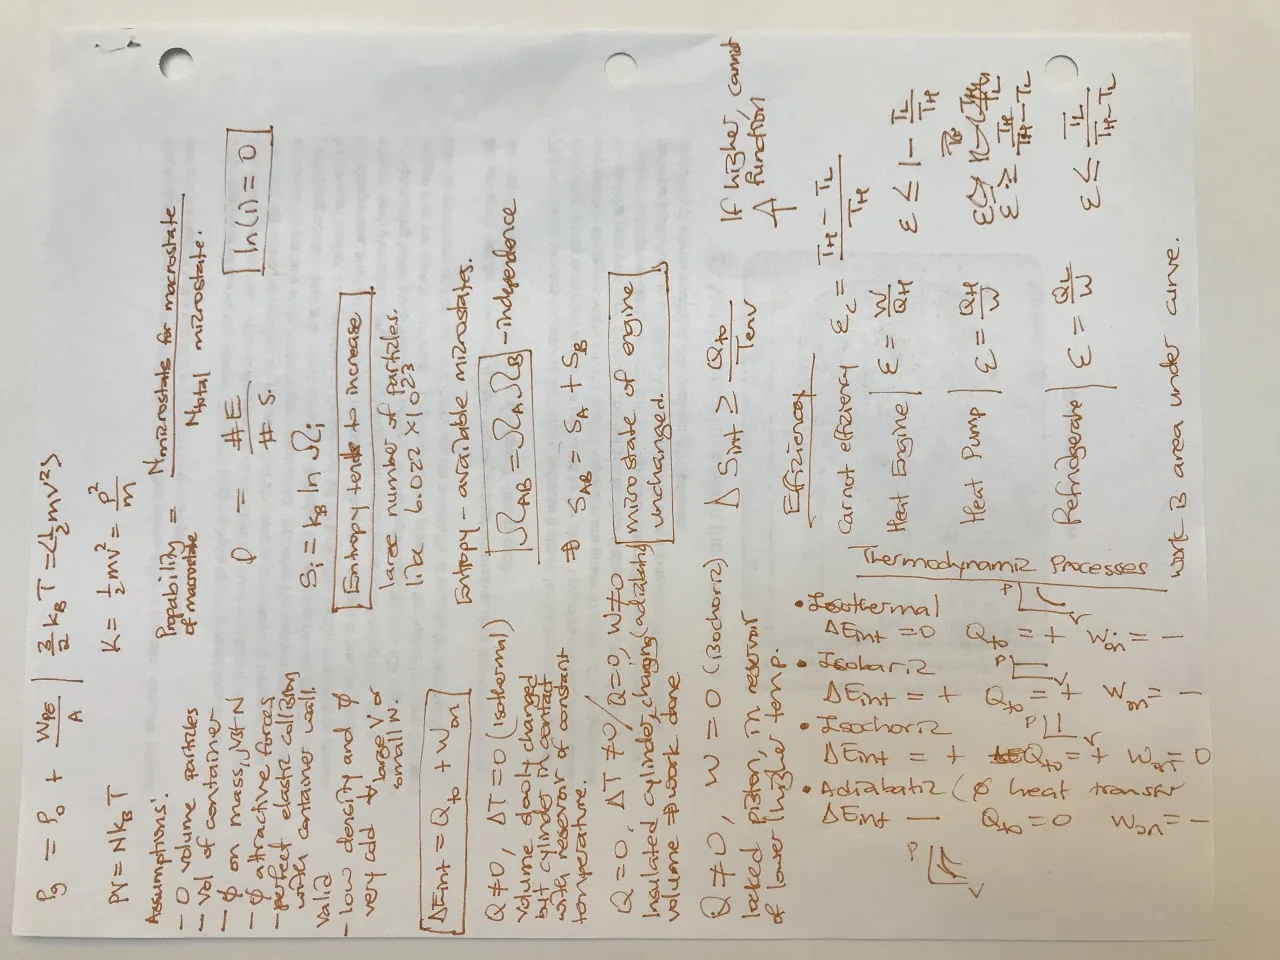 Pg = Po + WPE/A | 3/2 kB T = <1/2 mv²>
PV = NkBT K = 1/2 mv² = p²/m
Assumptions:
- 0 volume particles
- vol of container
- ϕ on mass, V≠N
- ϕ attractive forces
- perfect elastic collision
with container wall.
Valid
- low density and ϕ
very cold → large V or
small N.
Probability of macrostate = Nmicrostate for macrostate / Ntotal microstate.
P = #E / #S.
ln(1) = 0
Si = kB ln Ωi
Entropy tends to increase
large number of particles.
like 6.022 x 10^23
Entropy - available microstates.
ΔEint = Qto + Won
ΩAB = ΩAΩB - independence
⇒ SAB = SA + SB
Q≠0, ΔT=0 (isothermal)
volume slowly changed
but cylinder in contact
with reservoir of constant
temperature.
microstate of engine
unchanged.
Q=0, ΔT≠0 / Q=0, W≠0
Insulated cylinder, changing (adiabatic)
volume ⇒ work done
Q≠0, W=0 (isochoric)
locked piston, in reservoir
of lower/higher temp.
ΔSint ≥ Qto/Tenv
If higher, cannot
function
Efficiency
Carnot efficiency εc = TH - TL / TH
Heat Engine | ε = W/QH ε ≤ 1 - TL/TH
Heat Pump | ε = QH/W ε ≥ TH/TH-TL
Refridgerate | ε = QL/W ε ≤ TL/TH-TL
Work is area under curve.
Thermodynamic Processes
• Isothermal P
ΔEint = 0 Qto = + Won = -
• Isobaric P
ΔEint = + Qto = + Won = -
• Isochoric P
ΔEint = + Qto = + Won = 0
• Adiabatic (ϕ heat transfer
ΔEint - Qto = 0 Won = -
P
V